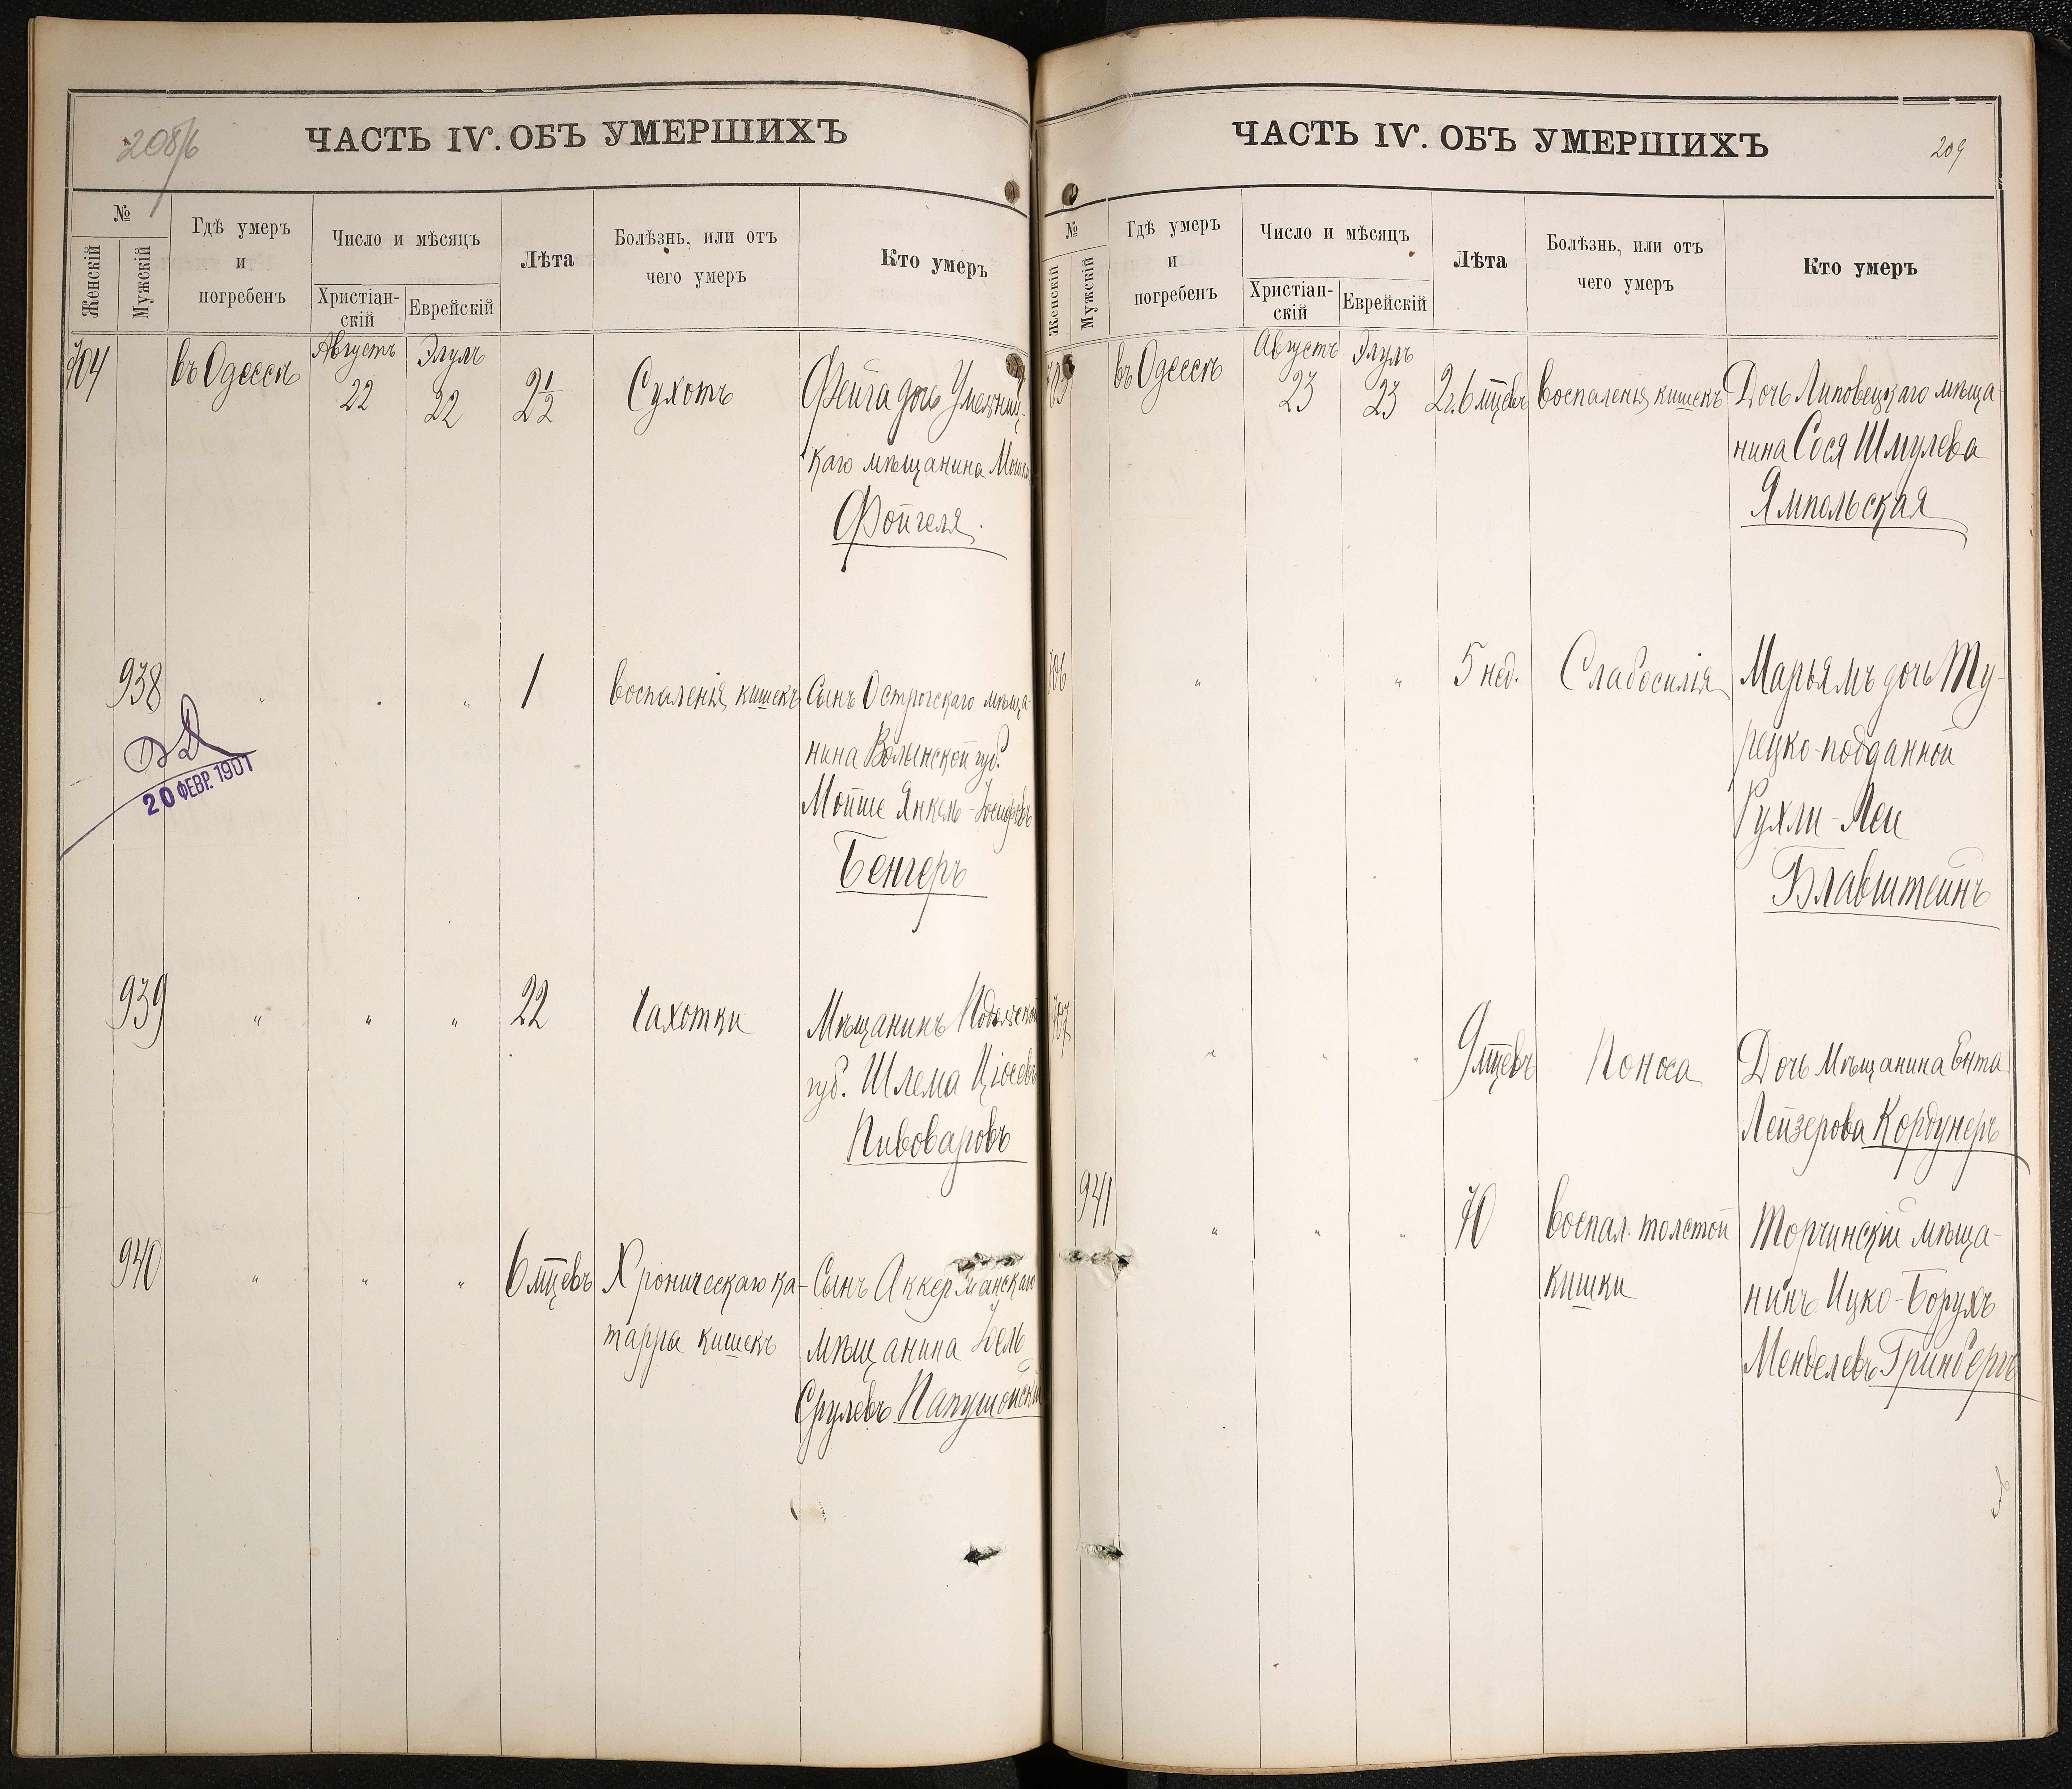 208/6
ЧАСТЬ IV. ОБЪ УМЕРШИХЪ
№
Женскій
Мужскій
Гдѣ умеръ
и
погребенъ
Число и мѣсяцъ
Христіан-
скій
Еврейскій
Лѣта
Болѣзнь, или отъ
чего умеръ
Кто умеръ
704
въ Одессѣ
Августъ
22
Элулъ
22
2 1/2
Сухотъ
Фейга дочь Умельниц-
каго мѣщанина
Фойгеля.
938
" " "
1
воспаленія кишекъ
Сынъ Острогскаго мѣща-
нина Волынской губ.
Мойше Янкель-Іосифовъ
Бенгеръ
20 ФЕВР. 1901
939
" " "
22
Чахотки
Мѣщанинъ Подольской
губ. Шлема
Пивоваровъ
940
" " "
6 мѣцевъ
Хроническаго ка-
тарра кишекъ
Сынъ Аккерманскаго
мѣщанина
Срулевъ Папушойскій
ЧАСТЬ IV. ОБЪ УМЕРШИХЪ
209
№
Женскій
Мужскій
Гдѣ умеръ
и
погребенъ
Число и мѣсяцъ
Христіан-
скій
Еврейскій
Лѣта
Болѣзнь, или отъ
чего умеръ
Кто умеръ
705
въ Одессѣ
Августъ
23
Элулъ
23
2 г. 6 мѣцевъ
воспаленія кишекъ
Дочь Липовецкаго мѣща-
нина Сося Шмулева
Ямпольская
706
" " "
5 нед.
Слабосилія
Марьямъ дочь Ту-
рецко-подданной
Рухли-Леи
Блавштейнъ
707
" " "
9 мѣцевъ
Поноса
Дочь Мѣщанина Ента
Лейзерова Кордунеръ
941
" " "
70
воспал. толстой
кишки
Торчинскій мѣща-
нинъ Ицко-Борухъ
Менделевъ Гринбергъ